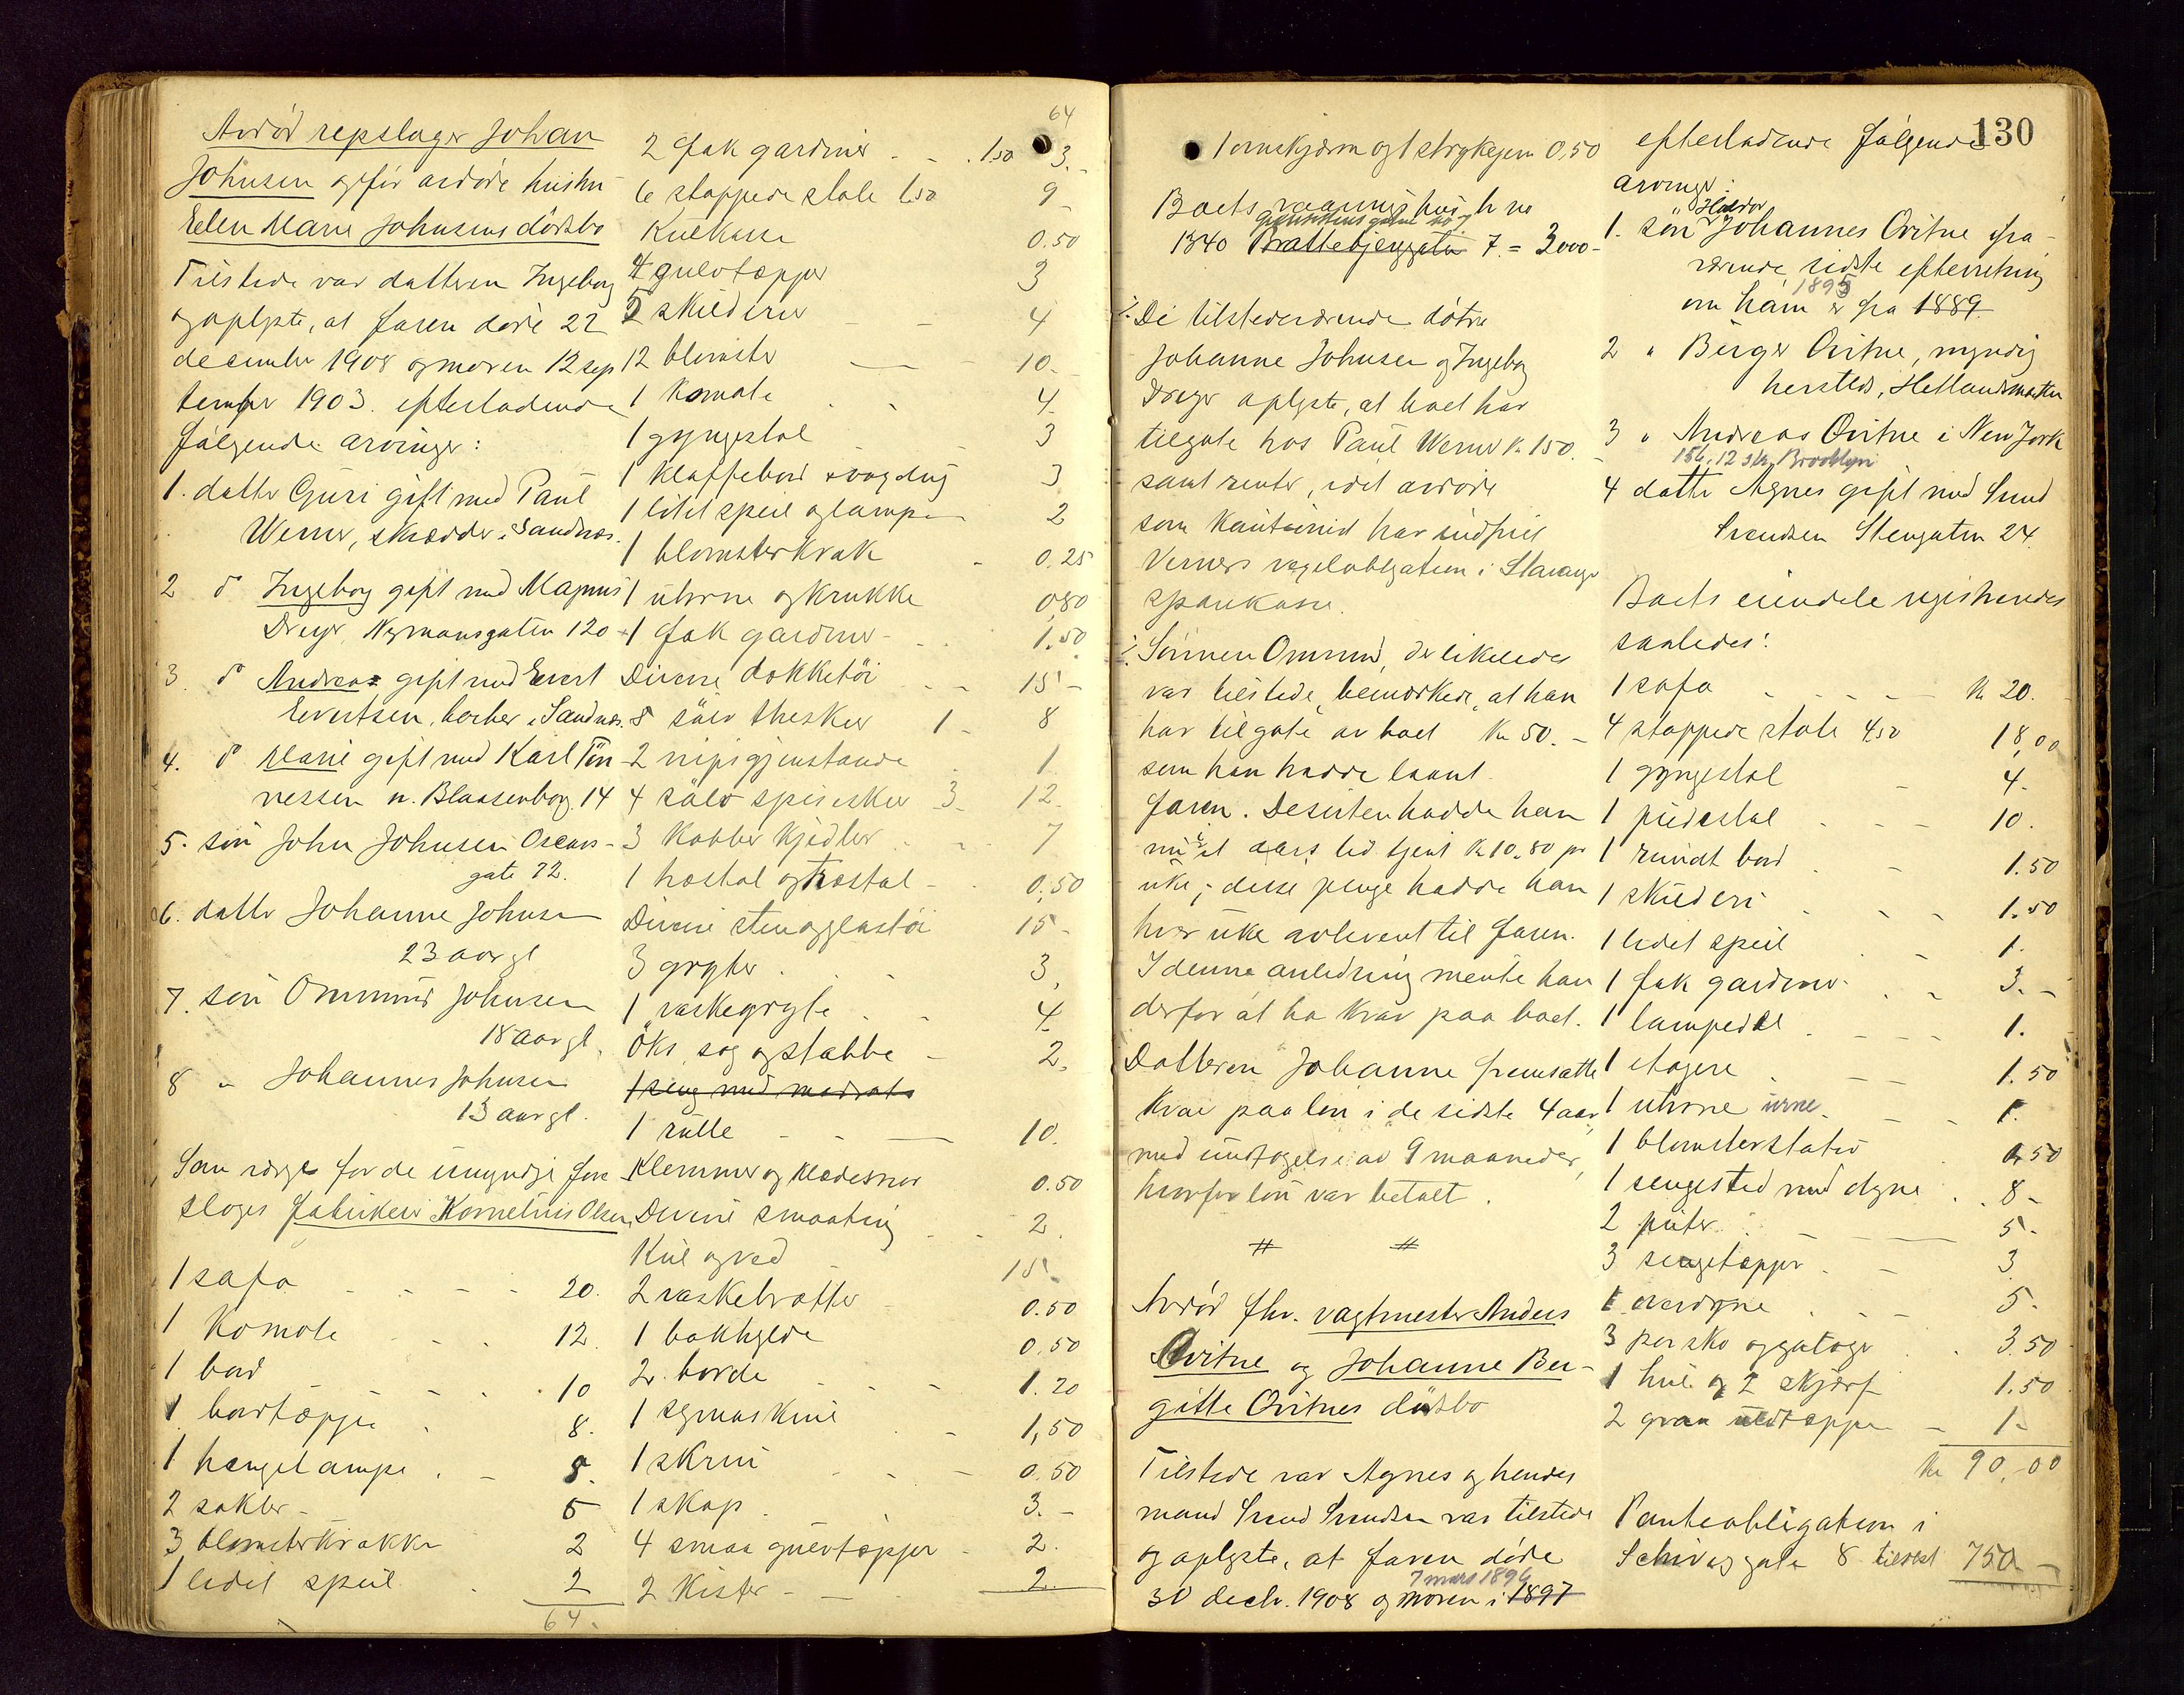 Avdød repslager Johan
Johnsen og før avdøde hustru
Ellen Marie Johnsens dødsbo
Tilstede var datteren Ingeborg
og oplyste, at faren døde 22
december 1908 og moren 12 sep
tember 1903. efterladende
følgende arvinger:
1. datter Guri gift med Paul
Werner, skrædder, Sandnes.
2 do Ingeborg gift med Magnus
Dreyer, Nymansgaten 120
3. do Andrea gift med Evert
Evertsen, barber, Sandnes.
4. do Marie gift med Karl Tøn
nessen n. Blaasenborg 14
5. søn John Johnsen Oscars-
gate 72.
6. datter Johanne Johnsen
23 aar gl
7. søn Ommund Johnsen
18 aar gl.
8 " Johannes Johnsen
13 aar gl.
Som værge for de umyndige fore
sloges fabrikeier Kornelius Olsen
1 safa 20.
1 Komode 12.
1 bord 10
1 bordtæppe 8.
1 hængelampe 5.
2 sokler 5
3 blomsterkrakke 2
1 lidet speil 2
64.
64
2 fak gardiner 1.50 3.-
6 stoppede stole 1.50 9
Kulkasse 0.50
4 gulvtæpper 3
5 skilderier 4
12 blomster 10.
1 Komode 4.
1 gyngestol 3
1 klaffebord & voxdug 3
1 litet speil og lampe 2
1 blomsterkrak 0.25
1 uhrne og krukke 0,80
1 fak gardiner 1.50
Diverse dækketøi 15-
8 sølv theskeer 1 8
2 nipsgjenstande 1
4 sølv spiseskeer 3 12.
3 Kobber kjedler 7
1 hostol og træstol 0,50
Diverse sten og glastøi 15-
3 gryter 3.
1 vaskegryte 4.
Øks, sag og stabbe 2.
1 seng med madrats
1 rulle 10.
Klemmer og klædesnor 0.50
Diverse smaating 2.
Kul og ved 15.
2 vaskebrætter 0.50
1 bakhylde 0.50
2 borde 1.20
1 symaskine 1,50
1 skrin 0.50
1 skap 3.-
4 smaa gulvtæpper 2.
2 Kister 2.
130
1 ovnskjærm og 1 strykejern 0,50
Boets vaaningshus br no
1340 Brattebjerggaten 7. = 3000-
De tilstedeværende døtre
Johanne Johnsen og Ingeborg
Dreyer oplyste, at boet har
tilgode hos Paul Werner kr 150.-
samt renter, idet avdøde
som Kautionist har indfriet
Werners vexelobligation i Stavanger
sparekasse.
Sønnen Ommund, der likeledes
var tilstede, bemærkede, at han
har tilgode av boet kr 50.-
som han hadde laant
faren. Desuten hadde han
nu i et aars tid tjent kr 10.80 pr
uke; disse penge hadde han
hver uke avlevert til faren.
I denne anledning mente han
derfor at ha krav paa boet.
Datteren Johanne fremsatte
krav paa løn i de sidste 4 aar
med undtagelse av 9 maaneder,
hvorfor løn var betalt.
# #
Avdød fhv. vagtmester Anders
Qvitne og Johanne Ber-
gitte Qvitnes dødsbo
Tilstede var Agnes og hendes
mand Svend Svendsen var tilstede
og oplyste, at faren døde
7 mars 1894
30 decbr. 1908 og moren i 1897
efterladende følgende
arvinger:
Haldor
1. søn Johannes Qvitne fra-
værende, sidste efterretning
1895
om ham er fra 1889.
2 " Birger Qvitne, myndig
hersteds, Hetlandsmarken
3 " Andreas Qvitne i New York
156, 12 str. Brooklyn
4 datter Agnes gift med Svend
Svendsen Stengaten 24.
Boets eiendele registreredes
saaledes:
1 safa kr 20.
4 stoppede stole 4,50 18,00
1 gyngestol 4.
1 pidestal 10.
1 rundt bord 1.50
1 skilderi 1.50
1 lidet speil 1.
1 fak gardiner 3.-
1 lampe 1.
1 etagere 1.50
1 uhrne urne 1.
1 blomsterstativ 0.50
1 sengested med dyne 8-
2 puter 5-
3 sengetæpper 3
1 overdyne 5.
3 par sko og galoger 3.50
1 hue og 2 skjærf 1.50
2 graa uldtæpper 1-
Kr 90,00
Panteobligation i
gate 8 750.-